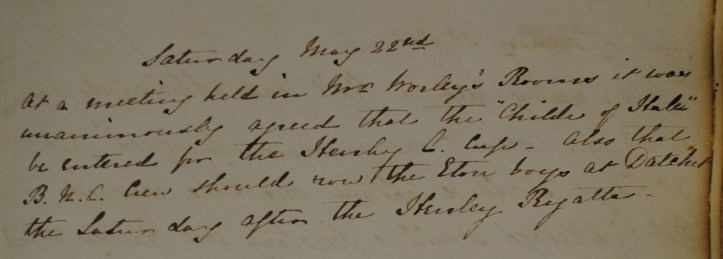 Saturday May 22nd
At a meeting held in Mr Worley's Rooms it was
unanimously agreed that the "Childe of Hale"
be entered for the Henley C. Cup - also that
B. N. C. Crew should row the Eton boys at Datchet
the Saturday after the Henley Regatta -